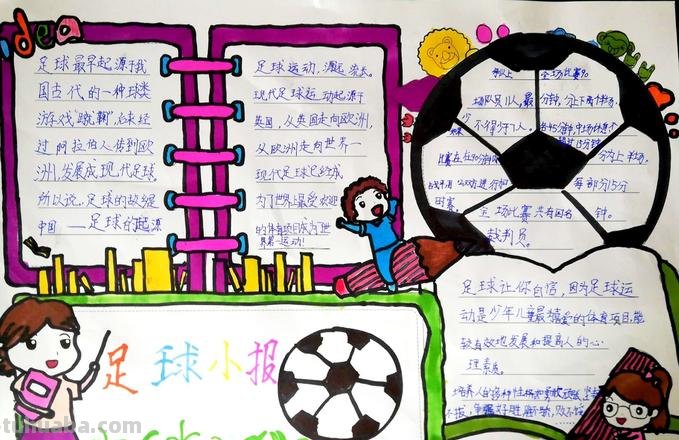 idea
足球最早起源于我
国古代的一种球类
游戏"蹴鞠",后来经
过阿拉伯人传到欧
洲,发展成现代足球。
所以说,足球的故乡是
中国——足球的起源
足球运动,源远流长。
现代足球运动起源于
英国,从英国走向欧洲,
从欧洲走向世界一
现代足球已经成
为了世界上最受欢迎
的体育项目成为世
界第一运动!
全场比赛90
场队员11人,最
分钟,分上下两个半场,
少不得少于7人。
每45分钟,中场休息不
分为上半场。
每部分15分
钟。
全场比赛共有四名
裁判员。
足球让你自信,因为足球运
动是少年儿童最喜爱的体育项目,能
较有效地发展和提高人的心
理素质。
足球小报
tuhuaba.com